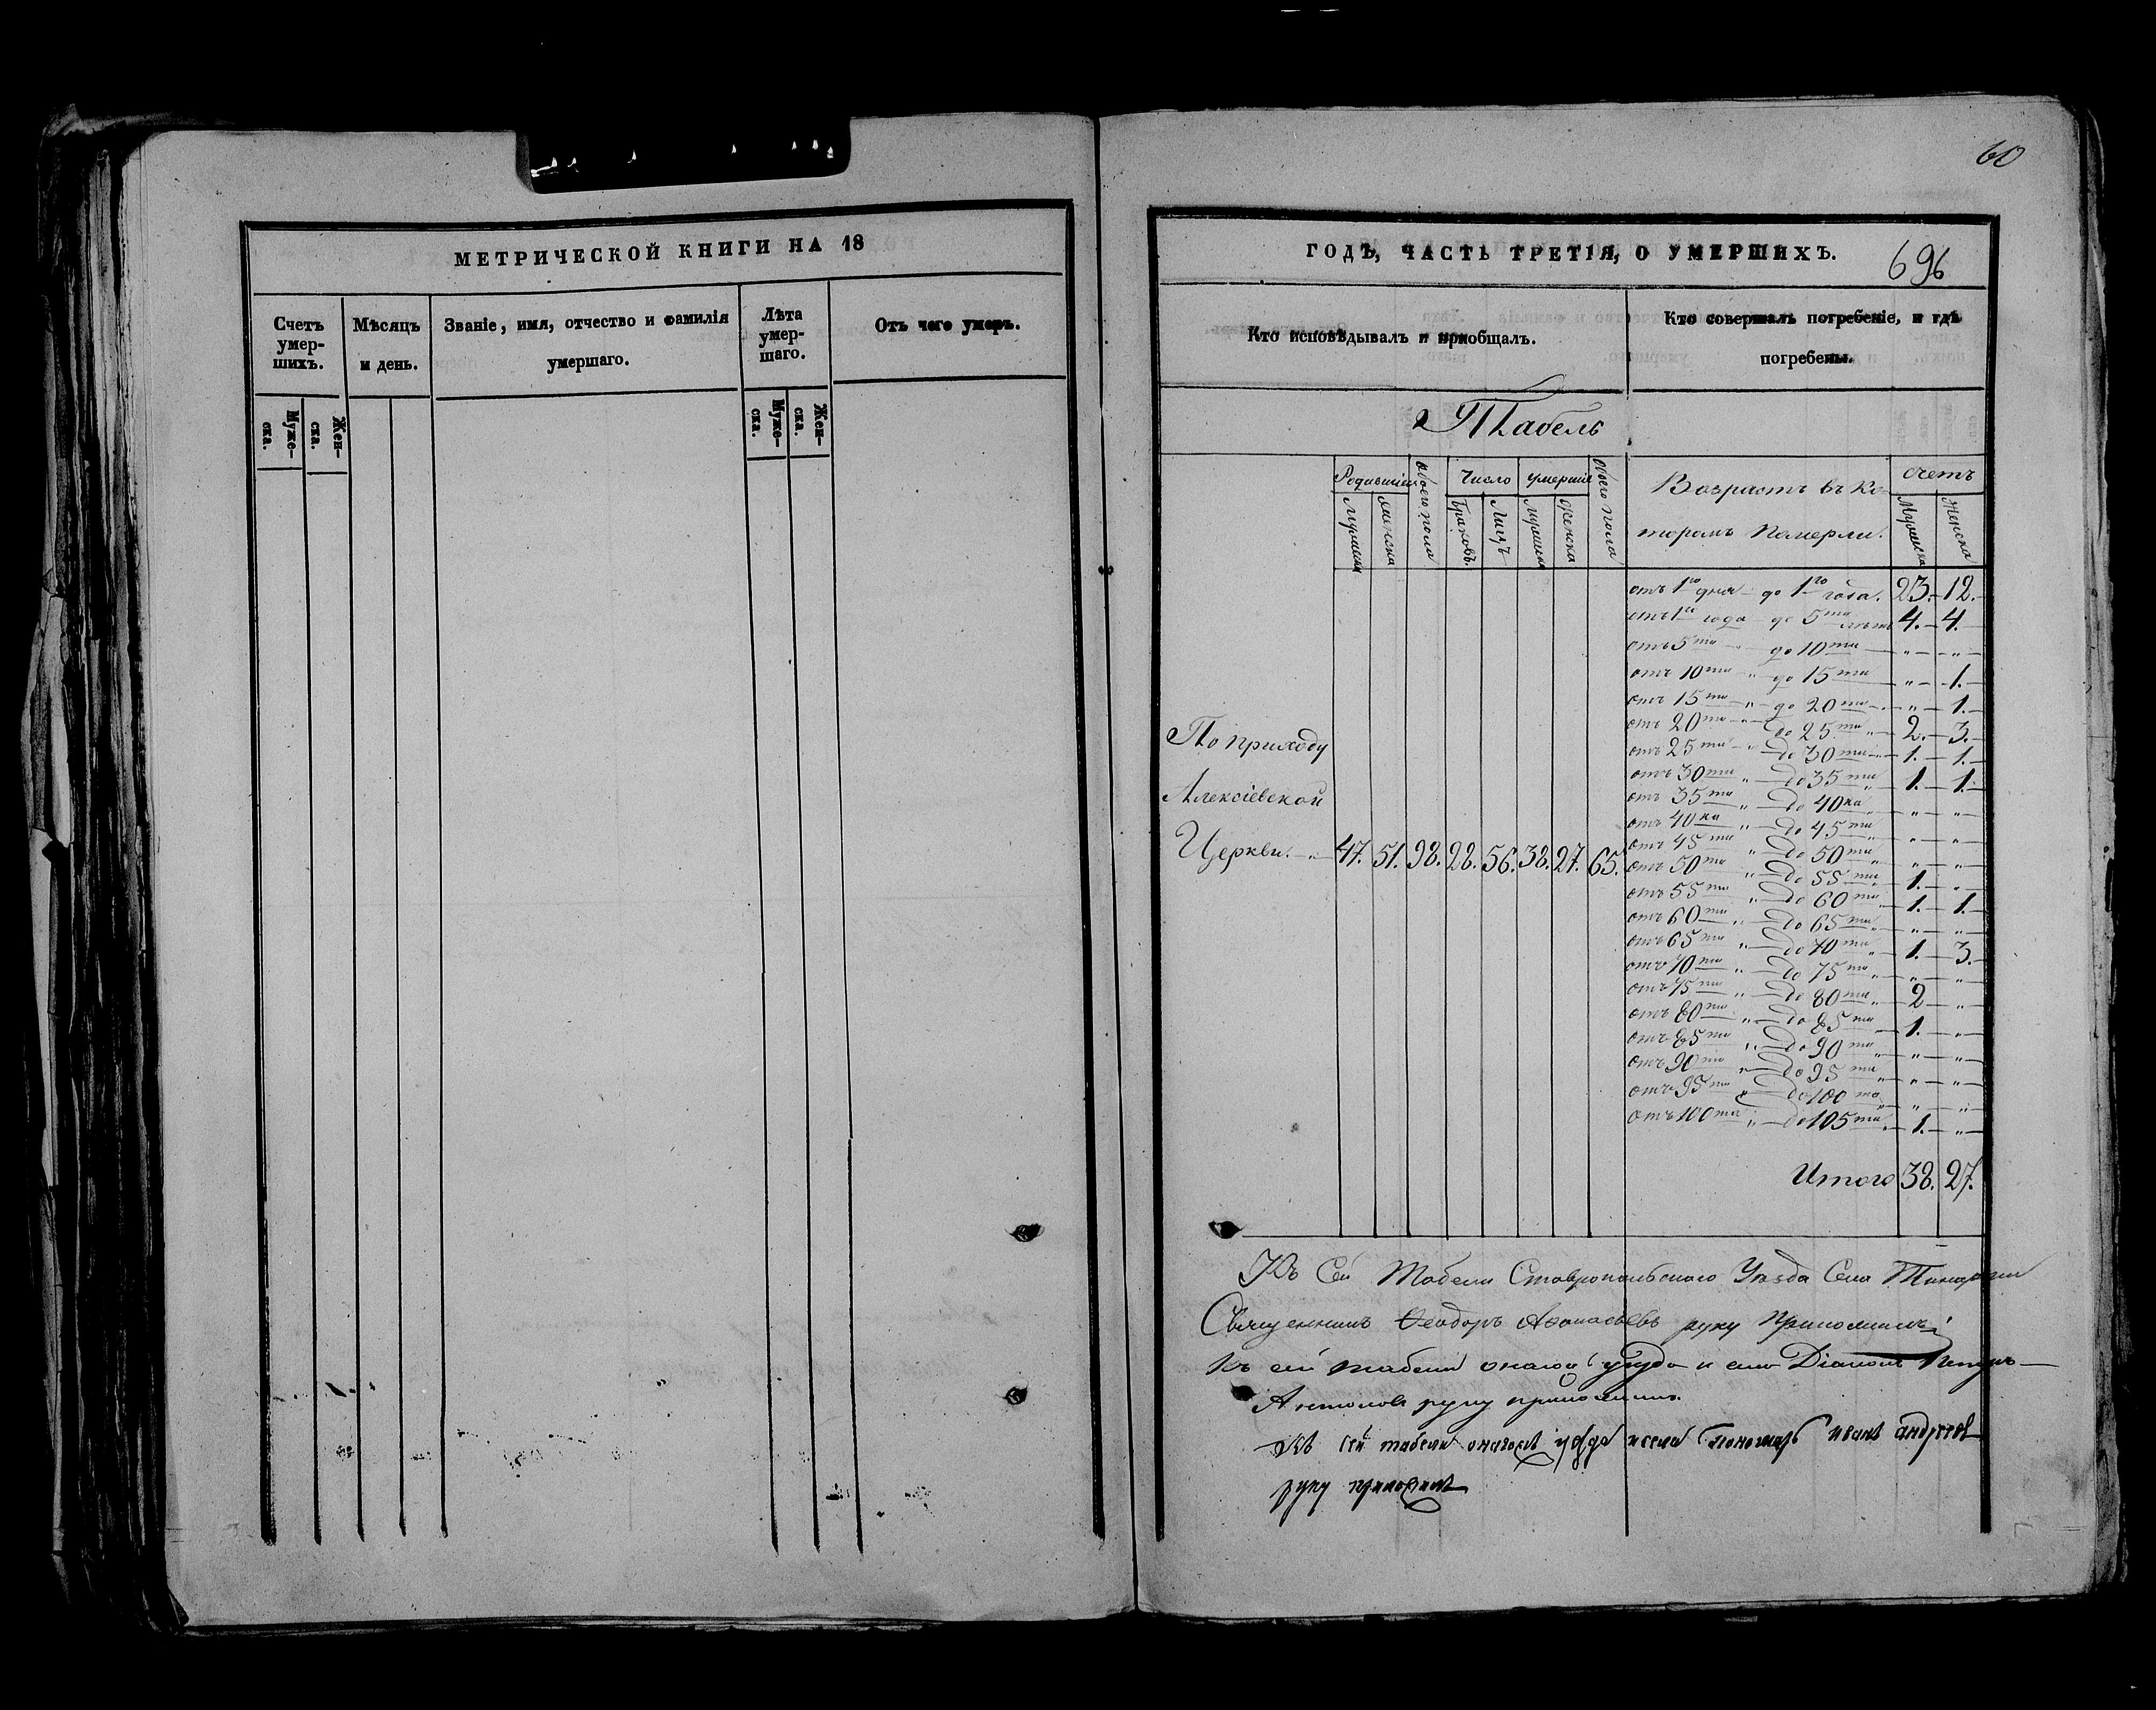 МЕТРИЧЕСКОЙ КНИГИ НА 18
Счетъ умер-шихъ.
Мѣсяцъ и день.
Званіе, имя, отчество и фамилія умершаго.
Лѣта умер-шаго.
Отъ чего умеръ.
Муже-ска.
Жен-ска.
Муже-ска.
Жен-ска.
60
ГОДЪ, ЧАСТЬ ТРЕТІЯ, О УМЕРШИХЪ.
696
Кто исповѣдывалъ и пріобщалъ.
Кто совершалъ погребеніе, и гдѣ погребены.
Табель
Родившіеся
обоего пола
Число
умершіе
обоего пола
Возрастъ въ ко-
торомъ Померли.
счетъ
мужска
женска
Браковъ.
Лицъ
мужска
женска
Мужска
женска
По приходу
Алексіевской
Церкви. 47. 51. 98. 28. 56. 38. 27. 65.
отъ 1го дня до 1го года. 23. 12.
отъ 1го года до 5ти лѣтъ 4. 4.
отъ 5ти до 10ти " "
отъ 10ти " до 15ти " 1.
отъ 15ти " до 20ти " 1.
отъ 20ти " до 25ти " 2. 3.
отъ 25ти " до 30ти 1. 1.
отъ 30ти " до 35ти " 1. 1.
отъ 35ти " до 40ка " " "
отъ 40ка " до 45ти " " "
отъ 45ти " до 50ти " " "
отъ 50ти " до 55ти 1. "
отъ 55ти " до 60ти " 1. 1.
отъ 60ти " до 65ти " " "
отъ 65ти " до 70ти " 1. 3.
отъ 70ти " до 75ти " " "
отъ 75ти " до 80ти " 2 "
отъ 80ти " до 85ти 1. "
отъ 85ти " до 90ти " " "
отъ 90ти " до 95ти " " "
отъ 95ти " до 100та " " "
отъ 100та " до 105ти " 1. "
Итого 38. 27.
Къ сей Табели Ставропольскаго Уѣзда Села
Священникъ Ѳеодоръ Аѳанасьевъ руку Приложилъ
Къ сей табели онагожъ уѣзда и села Діаконъ Петръ
Антоновъ руку приложилъ.
Къ сей табели онагожъ уѣзда и села Пономарь иванъ андреевъ
руку приложилъ